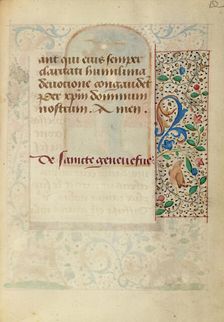 ant qui eius semper
claritati humilima
deuotione congaudet
Per xpm dominum
nostrum. Amen.
De sancte geneuefue